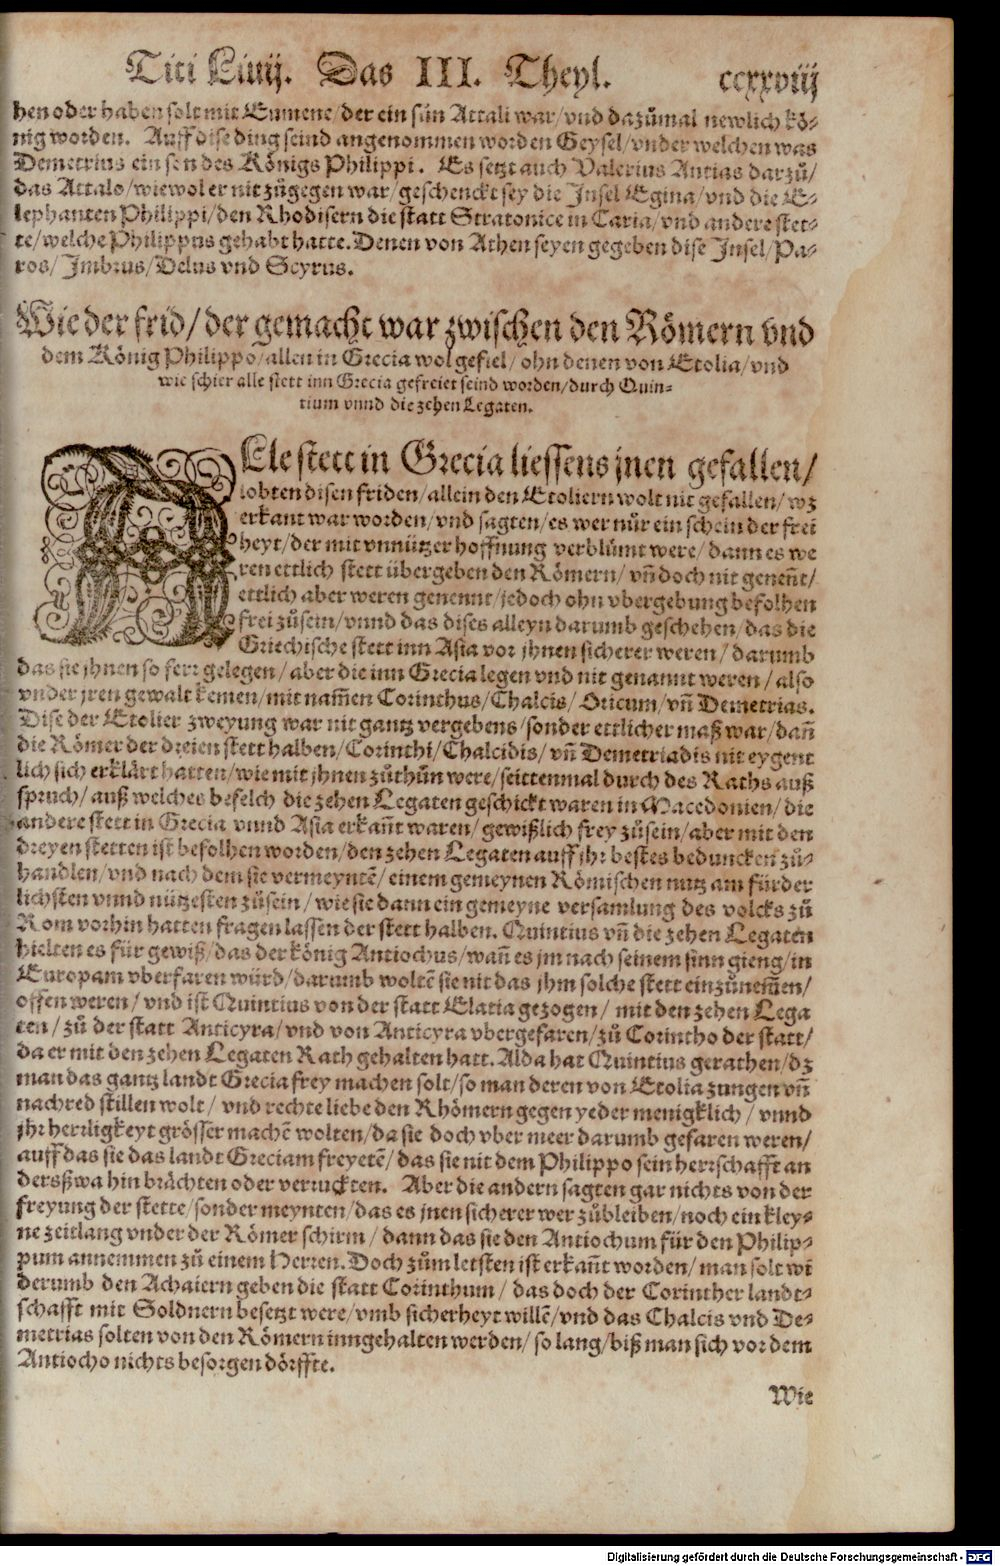 Titi Liuij. Das III. Theyl. ccxxviij
hen oder haben solt mit Eumene/der ein sůn Attali war/vnd dazůmal newlich kö⸗
nig worden. Auff dise ding seind angenommen worden Geysel/vnder welchen was
Demetrius ein son des Königs Philippi. Es setzt auch Valerius Antias darzů/
das Attalo/wiewol er nit zůgegen war/geschenckt sey die Insel Egina/vnd die E⸗
lephanten Philippi/den Rhodisern die statt Stratonice in Caria/vnd andere stet⸗
te/welche Philippus gehabt hatte. Denen von Athen seyen gegeben dise Insel/Pa⸗
ros/Imbrus/Delus vnd Scyrus.
Wie der frid/der gemacht war zwischen den Römern vnd
dem König Philippo/allen in Grecia wol gefiel/ohn denen von Etolia/vnd
wie schier alle stett inn Grecia gefreiet seind worden/durch Quin⸗
tium vnnd die zehen Legaten.
ALle stett in Grecia liessens jnen gefallen/
lobten disen friden/allein den Etoliern wolt nit gefallen/wz
erkant war worden/vnd sagten/es wer nůr ein schein der frei
heyt/der mit vnnützer hoffnung verblůmt were/dann es we
ren ettlich stett übergeben den Römern/vñ doch nit geneñt/
ettlich aber weren genennt/jedoch ohn vbergebung befolhen
frei zůsein/vnnd das dises alleyn darumb geschehen/das die
Griechische stett inn Asia vor jhnen sicherer weren/darumb
das sie jhnen so ferr gelegen/aber die inn Grecia legen vnd nit genannt weren/also
vnder jren gewalt kemen/mit nam̃en Corinthus/Chalcis/Oricum/vñ Demetrias.
Dise der Etolier zweyung war nit gantz vergebens/sonder ettlicher maß war/dañ
die Römer der dreien stett halben/Corinthi/Chalcidis/vñ Demetriadis nit eygent
lich sich erklärt hatten/wie mit jhnen zůthůn were/seittenmal durch des Raths auß
spruch/auß welches befelch die zehen Legaten geschickt waren in Macedonien/die
andere stett in Grecia vnnd Asia erkañt waren/gewißlich frey zůsein/aber mit den
dreyen stetten ist befolhen worden/den zehen Legaten auff jhr bestes beduncken zů⸗
handlen/vnd nach dem sie vermeyntẽ/einem gemeynen Römischen nutz am fürder
lichsten vnnd nützesten zůsein/wie sie dann ein gemeyne versamlung des volcks zů
Rom vorhin hatten fragen lassen der stett halben. Quintius vñ die zehen Legaten
hielten es für gewiß/das der könig Antiochus/wañ es jm nach seinem sinn gieng/in
Europam vberfaren würd/darumb woltẽ sie nit das jhm solche stett einzůnem̃en/
offen weren/vnd ist Quintius von der statt Elatia gezogen/mit den zehen Lega
ten/zů der statt Anticyra/vnd von Anticyra vbergefaren/zů Corintho der statt/
da er mit den zehen Legaten Rath gehalten hatt. Alda hat Quintius gerathen/dz
man das gantz landt Grecia frey machen solt/so man deren von Etolia zungen vñ
nachred stillen wolt/vnd rechte liebe den Rhömern gegen yeder menigklich/vnnd
jhr herrligkeyt grösser machẽ wolten/da sie doch vber meer darumb gefaren weren/
auff das sie das landt Greciam freyetẽ/das sie nit dem Philippo sein herrschafft an
derßwa hin brächten oder verruckten. Aber die andern sagten gar nichts von der
freyung der stette/sonder meynten/das es jnen sicherer wer zůbleiben/noch ein kley⸗
ne zeitlang vnder der Römer schirm/dann das sie den Antiochum für den Philip⸗
pum annemmen zů einem Herren. Doch zům letsten ist erkañt worden/man solt wi
derumb den Achaiern geben die statt Corinthum/das doch der Corinther landt⸗
schafft mit Soldnern besetzt were/vmb sicherheyt willẽ/vnd das Chalcis vnd De⸗
metrias solten von den Römern inngehalten werden/so lang/biß man sich vor dem
Antiocho nichts besorgen dörffte.
Wie
Digitalisierung gefördert durch die Deutsche Forschungsgemeinschaft - DFG